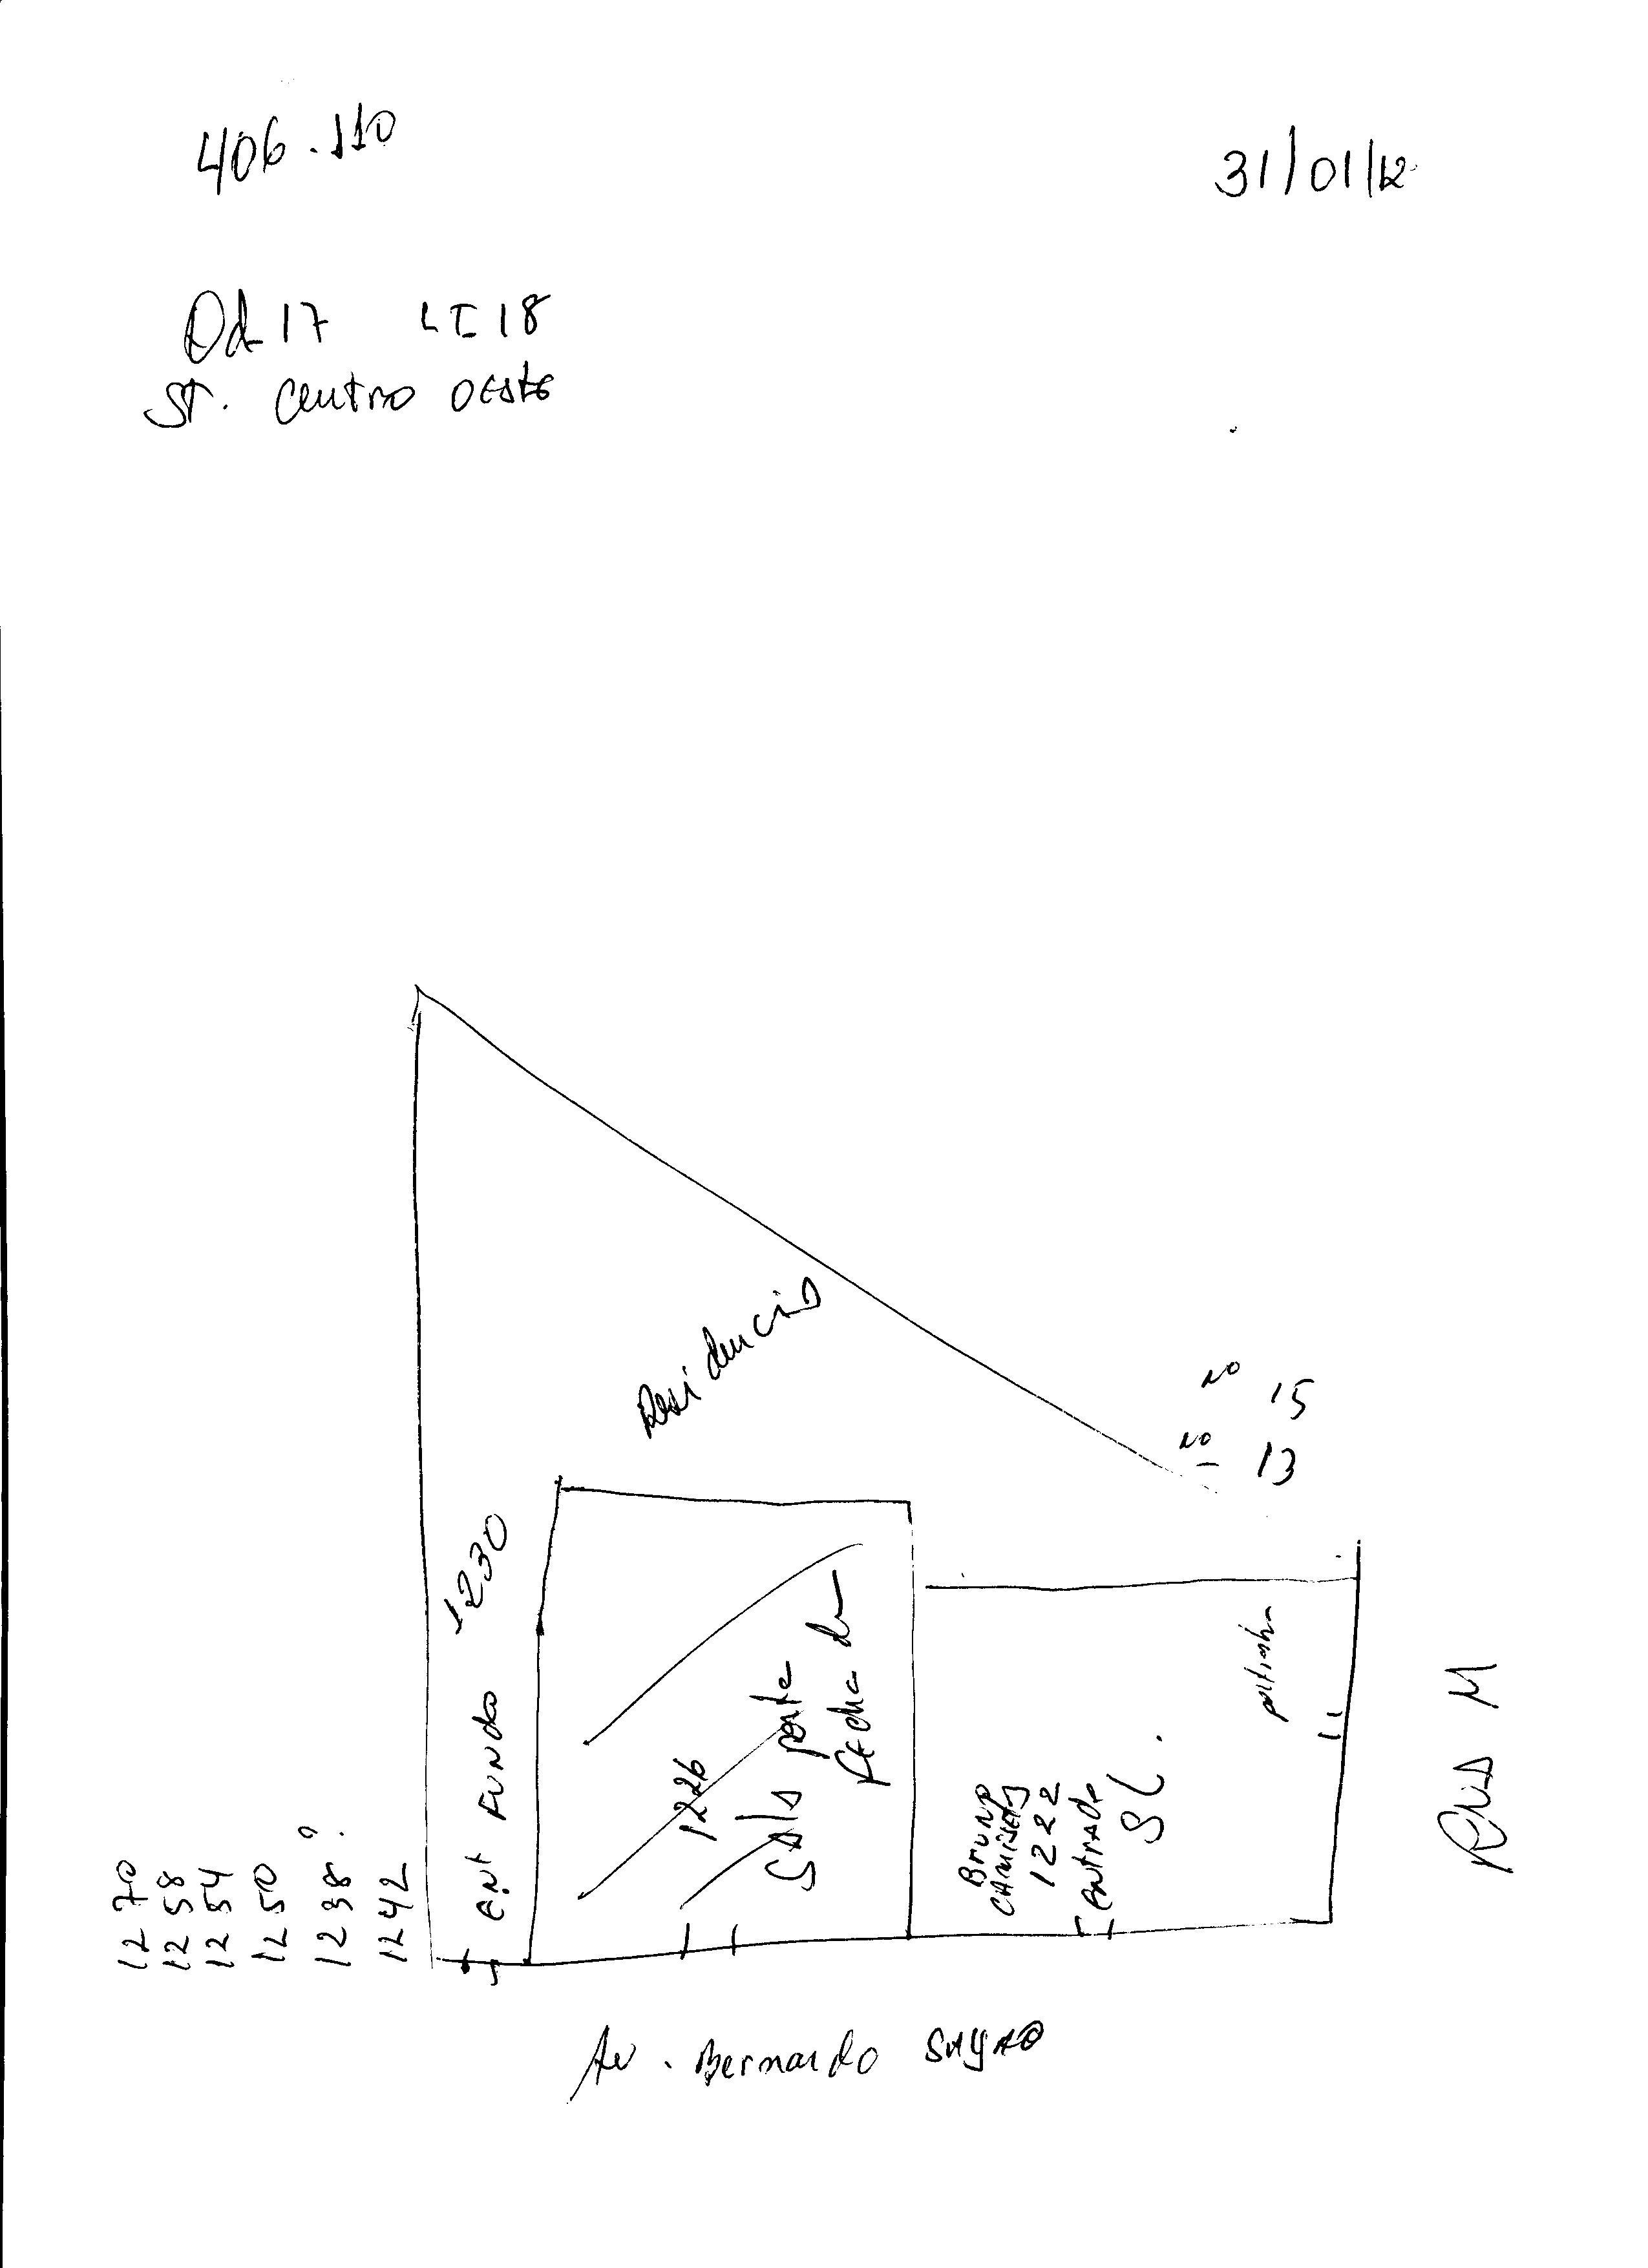 406.110
31/01/12
Qd 17 LT 18
ST. Centro Oeste
Residencia
Nº 15
Nº 13
1230
Ent Fundo
1226
Sala porta
fechada
Bruno
Camisetas
1222
Entrada
SL.
portinha
Rua M
1270
1258
1254
1250
1238?
1242
Av. Bernardo Sayao